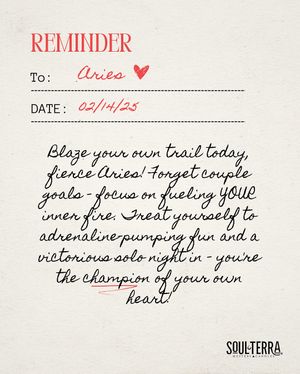 REMINDER
To: Aries
DATE: 02/14/25
Blaze your own trail today,
fierce Aries! Forget couple
goals - focus on fueling YOUR
inner fire. Treat yourself to
adrenaline-pumping fun and a
victorious solo night in - you're
the champion of your own
heart!
SOUL TERRA